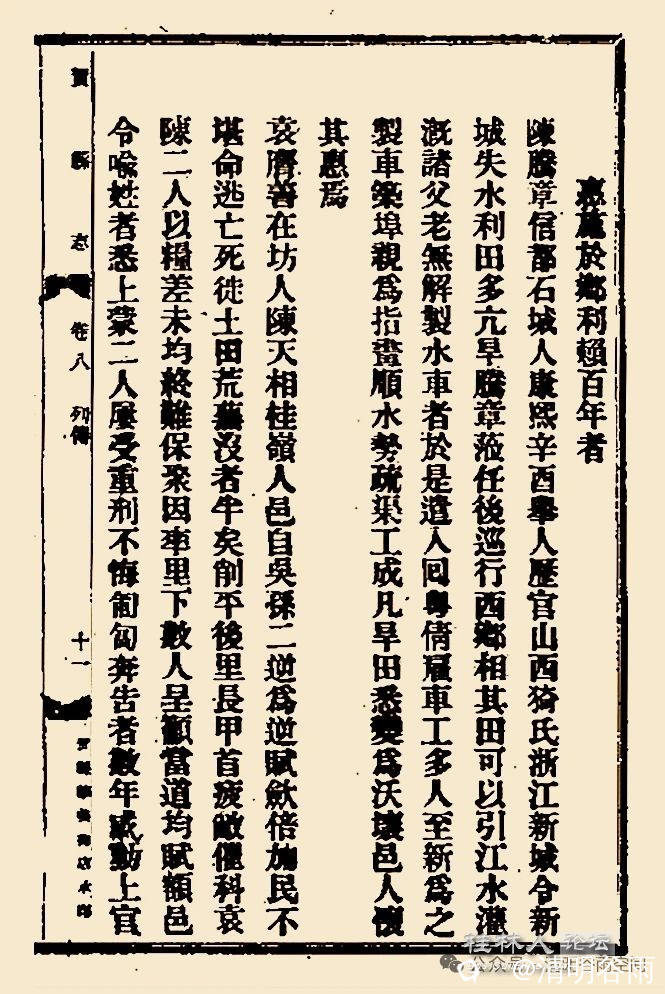 施於鄉利賴百年者
陳騰章信都石城人康熙辛酉舉人歷官山西猗氏浙江新城令新
城失水利田多亢旱騰章蒞任後巡行西鄉相其田可以引江水灌
溉諸父老無解製水車者於是遣人回粵倩雇車工多人至新爲之
製車築埠親爲指畫順水勢疏渠工成凡旱田悉變爲沃壤邑人懷
其惠焉
袁齊善在坊人陳天相桂嶺人邑自吳孫二逆爲逆賦歛倍加民不
堪命逃亡死徙土田荒蕪沒者半矣削平後里長甲首疲敝催科袁
陳二人以糧差未均終難保聚因率里下數人呈籲當道均賦額邑
令喻姓者悉上蒙二人屢受重刑不悔匍匐奔告者數年感動上官
賀縣志 卷八 列傳 十一
桂林人論壇
公众号
@清明谷雨